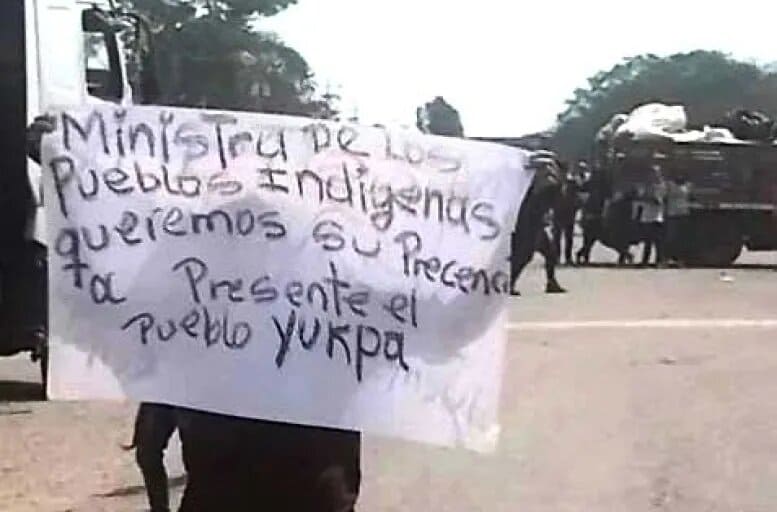 Ministra De Los
Pueblos Indígenas
queremos su Precenci
ta Presente el
Pueblo Yukpa